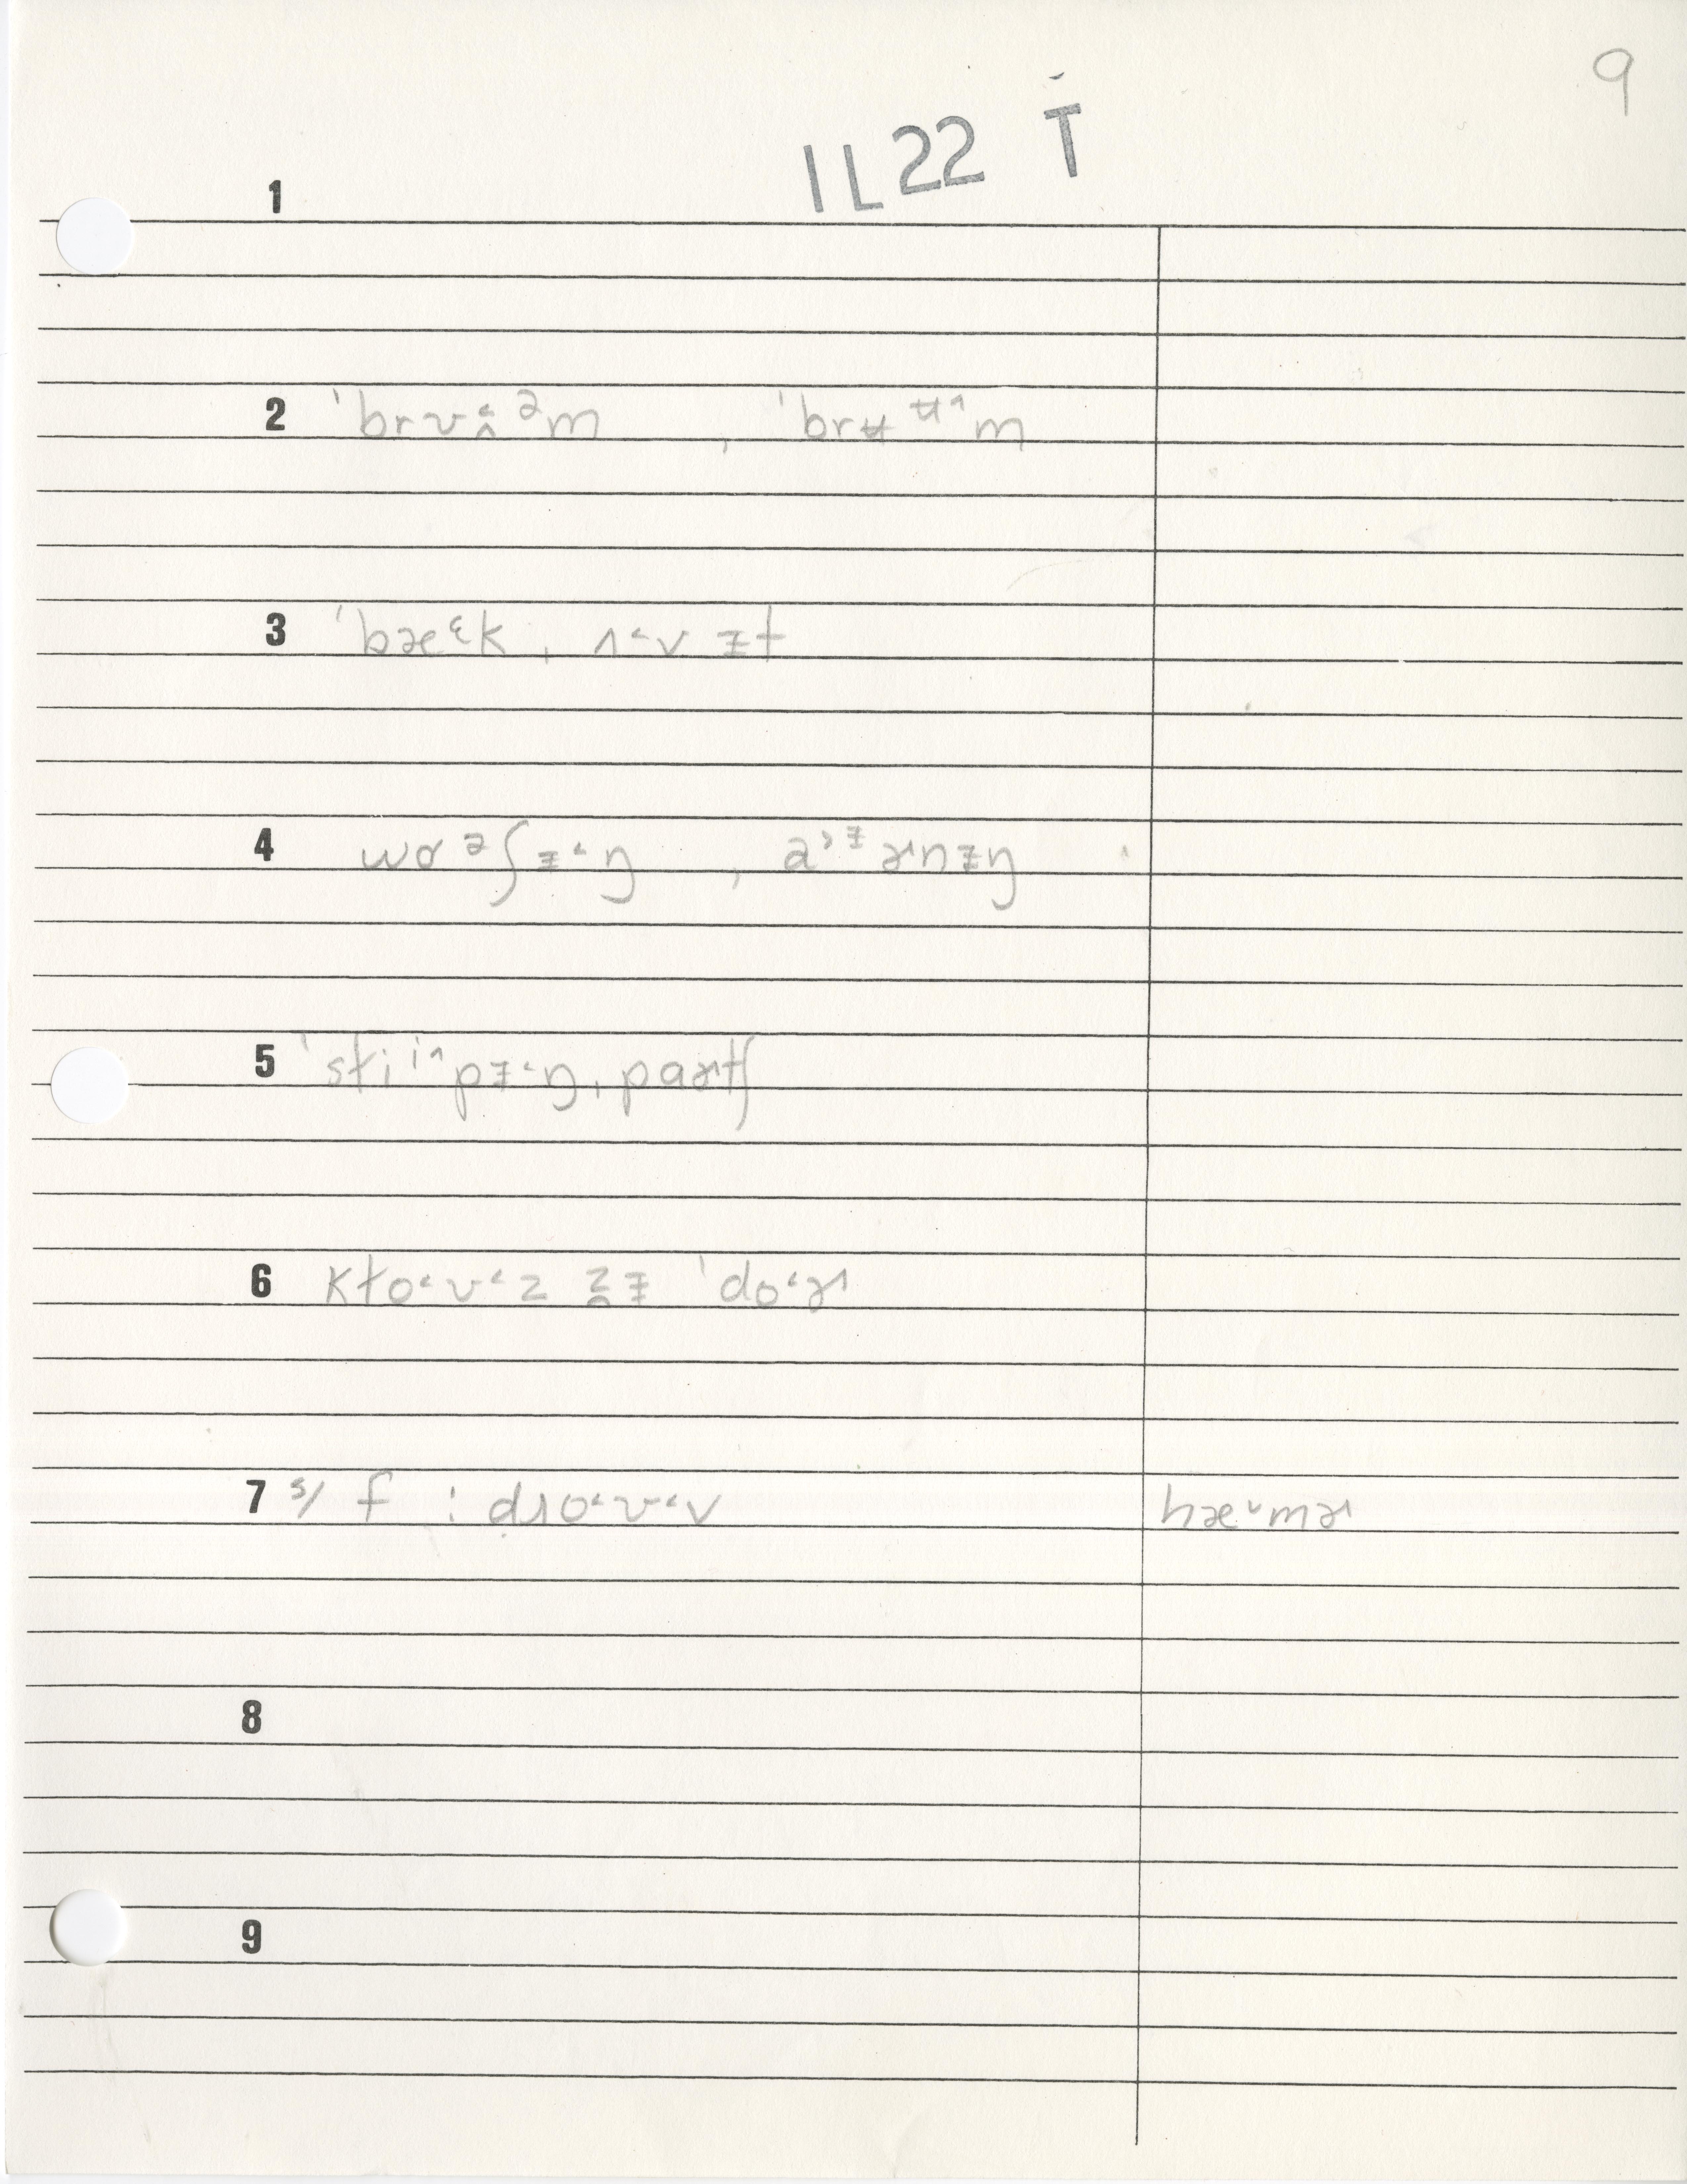 9
IL22 T
1
2 ˈbrʊ˞̭ᵊm , ˈbrʉᶶ˄m
3 ˈbæᵋk , ʌ˂v ɪ̵t
4 wɑᵊʃɪ̵˂ŋ , a˃ᶧɚnɪ̵ŋ
5 ˈstiⁱ˄pɪ̵˂ŋ , partʃ
6 kɫo˂ʊ˂z z̥ɪ̵ ˈdo˂ɚ
7 s/ f : dɹo˂ʊ˂v hæ˅mɚ
8
9